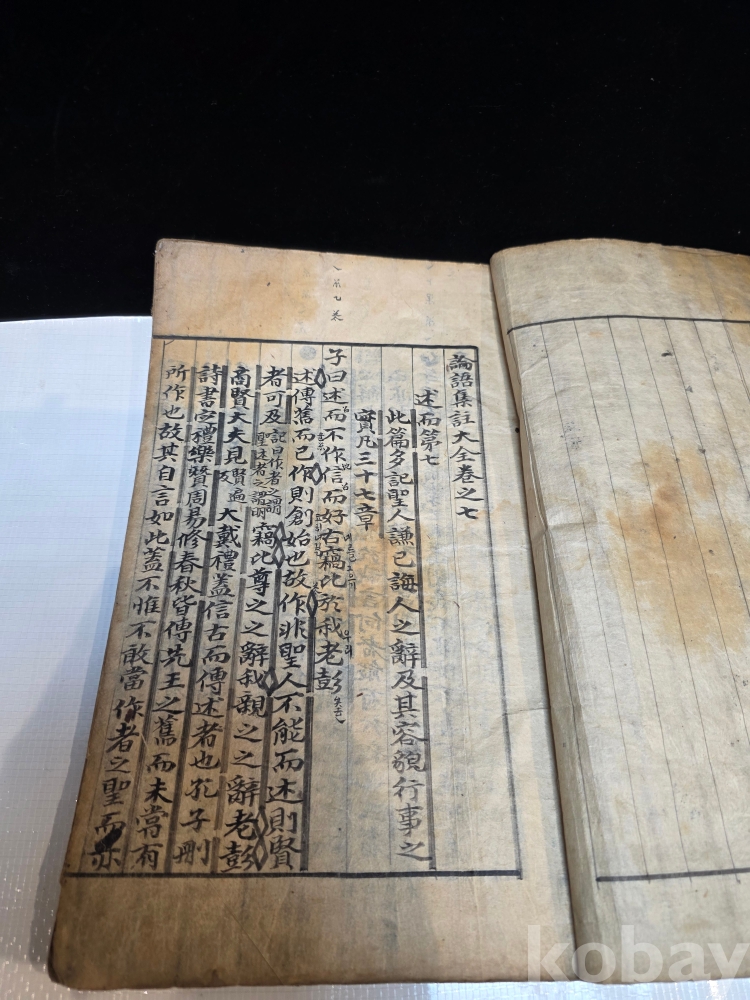 論語集註大全卷之七
述而第七
此篇多記聖人謙己誨人之辭及其容貌行事之
實凡三十七章
子曰述而不作信而好古竊比於我老彭
述傳舊而已作則創始也故作非聖人不能而述則賢
者可及記曰作者之謂聖述者之謂明竊比尊之之辭我親之之辭老彭
商賢大夫見賢遍反大戴禮蓋信古而傳述者也孔子刪
詩書定禮樂贊周易修春秋皆傳先王之舊而未嘗有
所作也故其自言如此蓋不惟不敢當作者之聖而亦
kobay